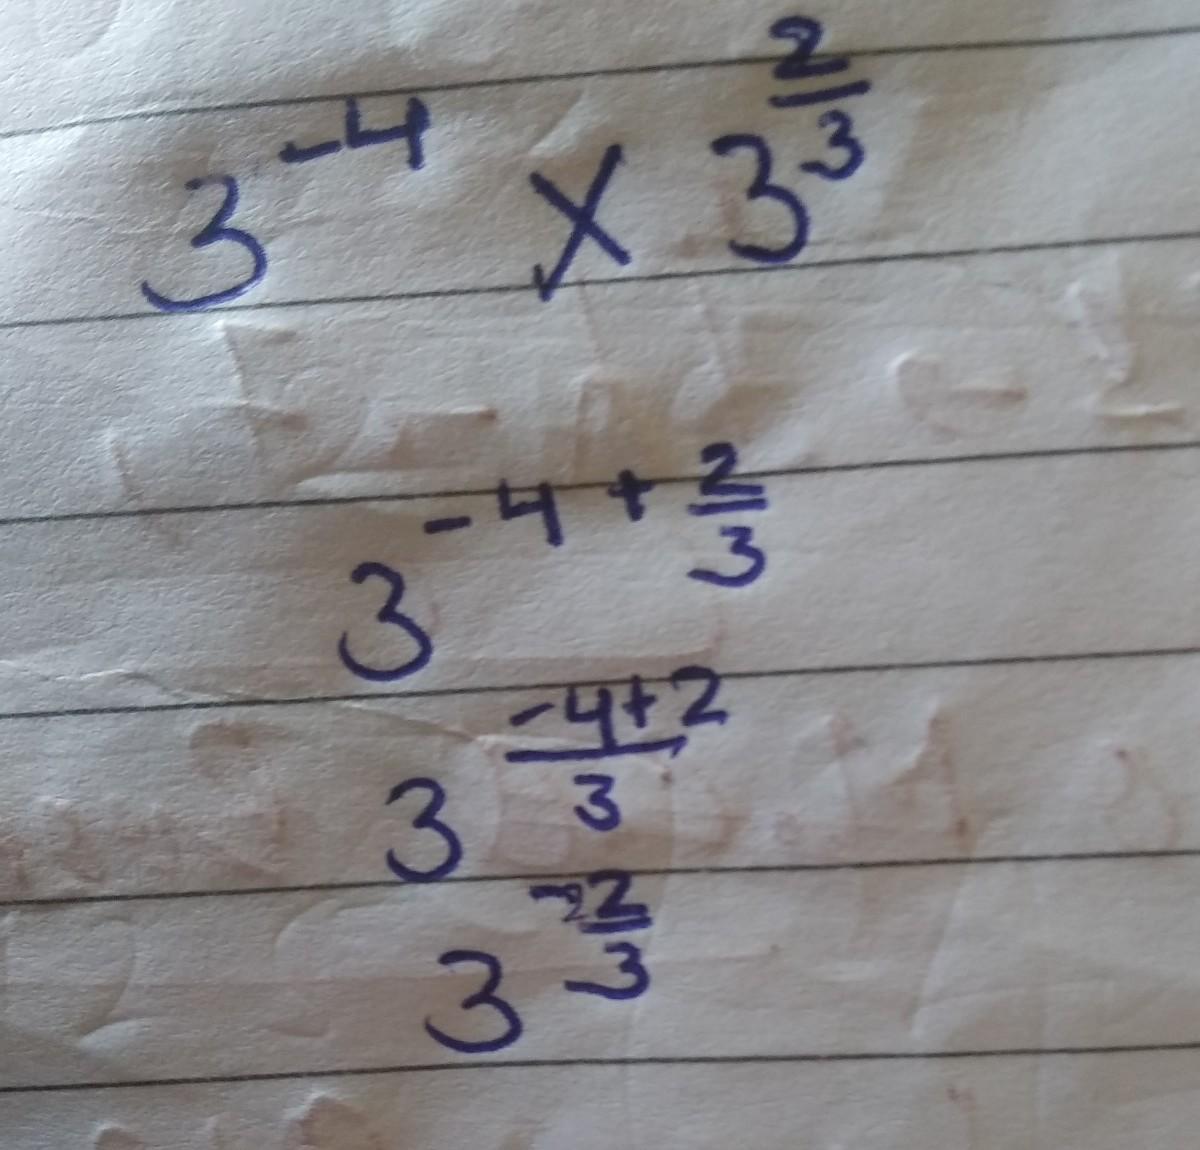 3^{-4} × 3^{\frac{2}{3}}
3^{-4 + \frac{2}{3}}
3^{\frac{-4+2}{3}}
3^{-\frac{2}{3}}